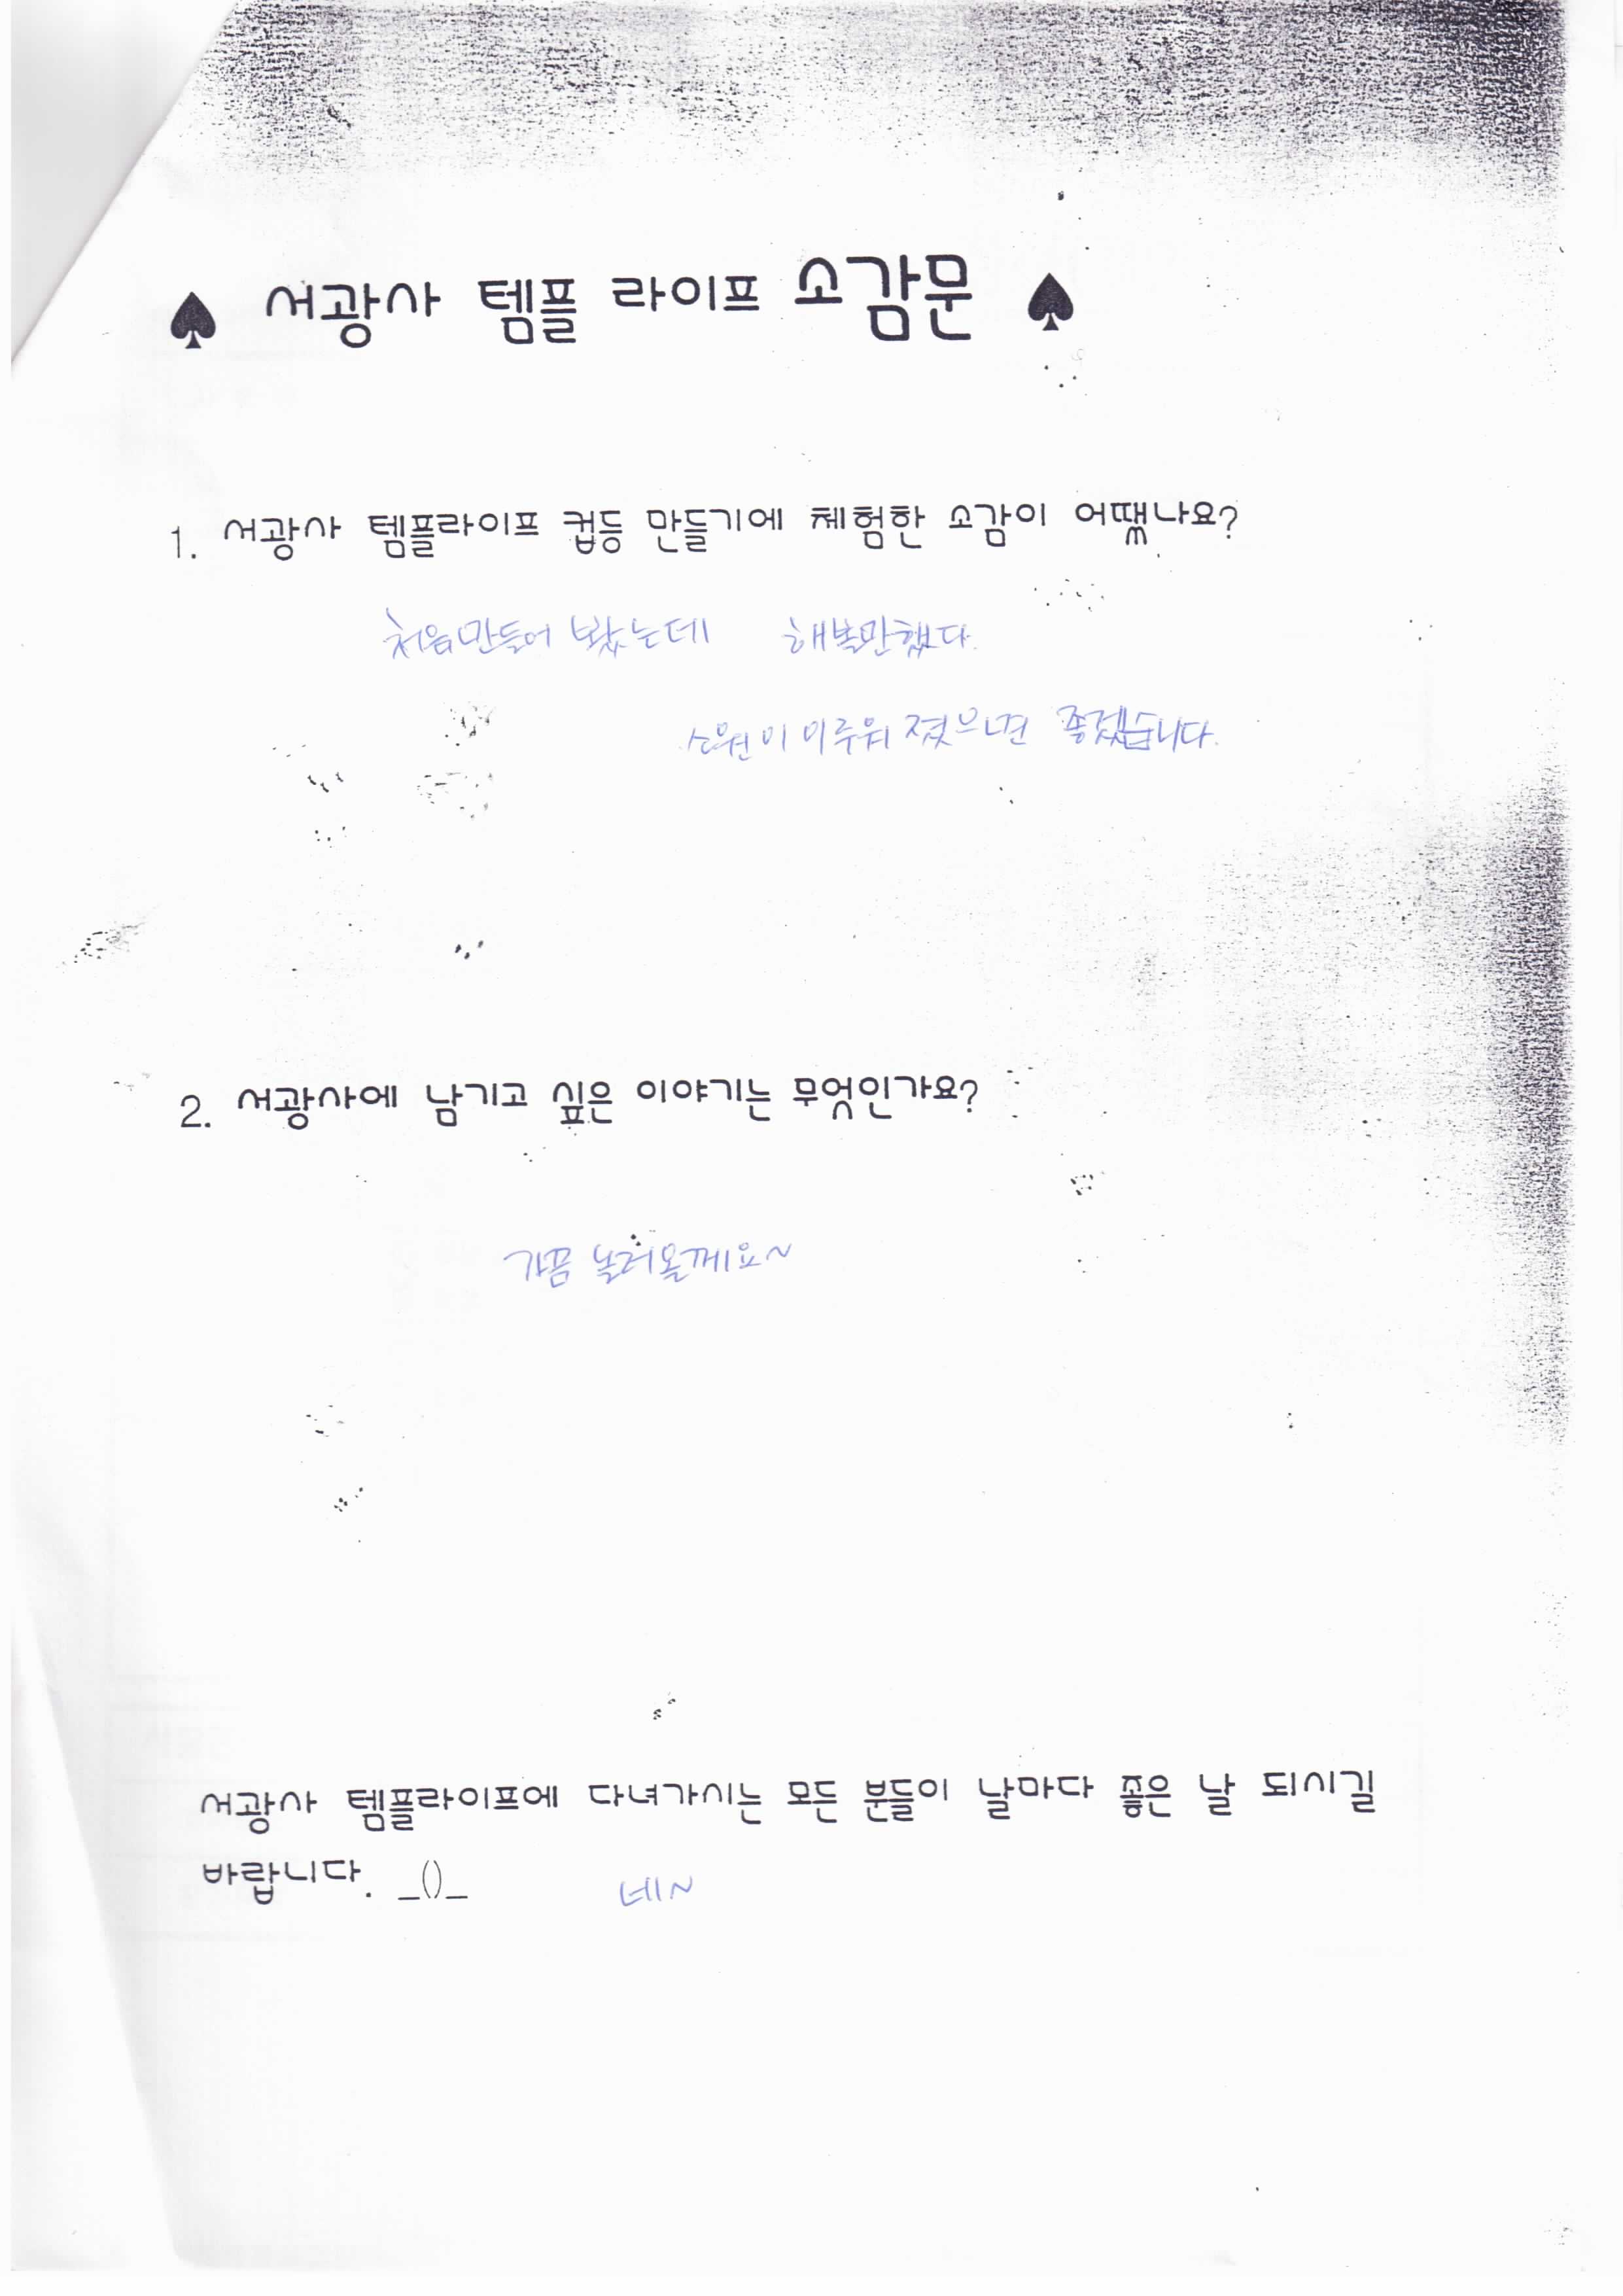 ♠ 서광사 템플 라이프 소감문 ♠
1. 서광사 템플라이프 컵등 만들기에 체험한 소감이 어땠나요?
처음만들어 봤는데 해볼만했다.
소원이 이루워 졌으면 좋겠습니다.
2. 서광사에 남기고 싶은 이야기는 무엇인가요?
가끔 놀러올께요~
서광사 템플라이프에 다녀가시는 모든 분들이 날마다 좋은 날 되시길
바랍니다. _()_ 네~